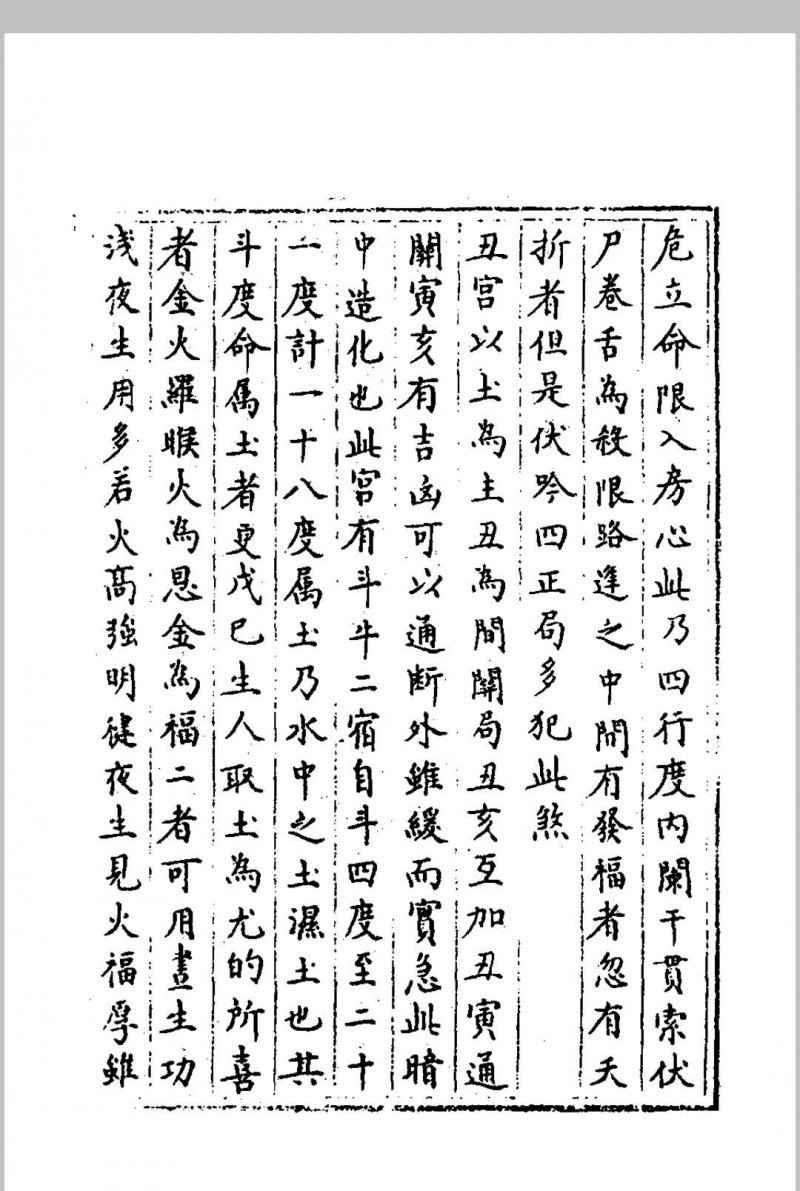 危立命限入房心此乃四行度内闌干貫索伏
尸卷舌為殺限路逢之中間有發福者忽有夭
折者但是伏吟四正局多犯此煞
丑宫以土為主丑為間關局丑亥互加丑寅通
關寅亥有吉凶可以通断外雖緩而實急此暗
中造化也此宫有斗牛二宿自斗四度至二十
二度計一十八度属土乃水中之土濕土也其
斗度命属土者更戊巳生人取土為尤的所喜
者金火羅㬋火為恩金為福二者可用晝生功
浅夜生用多若火髙强明健夜生見火福厚雖